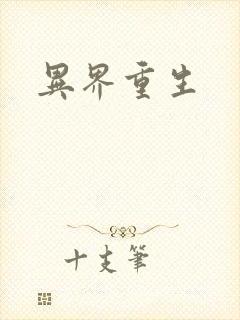 異界重生
十支筆